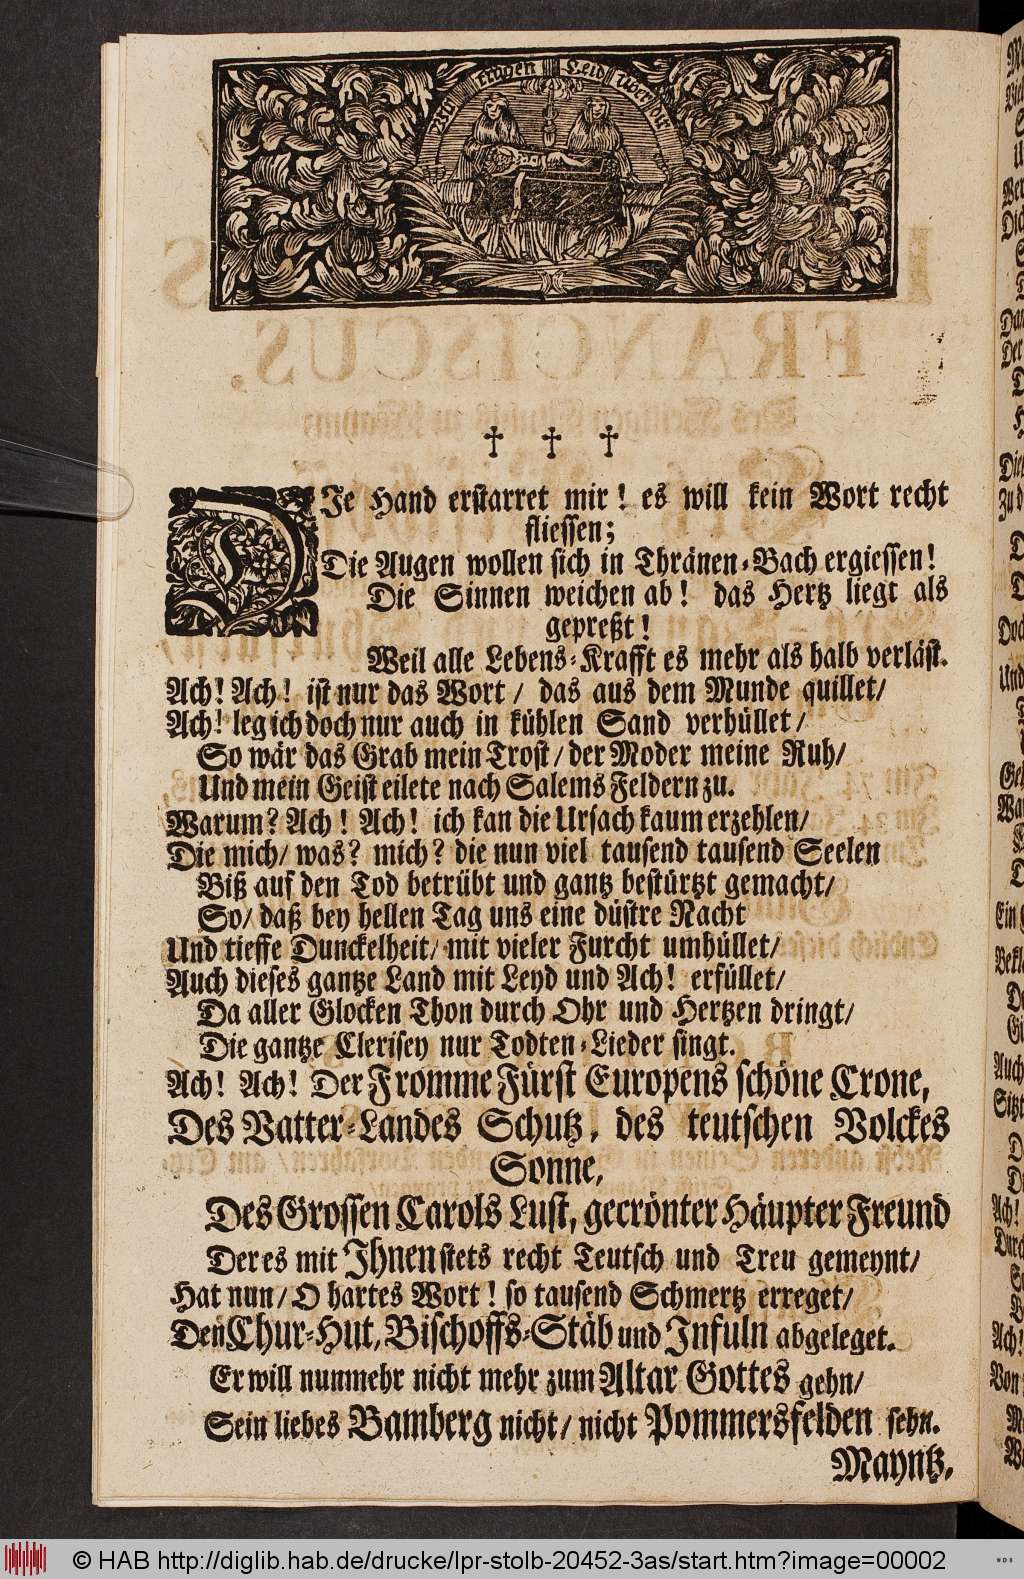 ✝ ✝ ✝
DJe Hand erstarret mir! es will kein Wort recht
fliessen;
Die Augen wollen sich in Thränen-Bach ergiessen!
Die Sinnen weichen ab! das Hertz liegt als
gepreßt!
Weil alle Lebens-Krafft es mehr als halb verläst.
Ach! Ach! ist nur das Wort/ das aus dem Munde quillet/
Ach! leg ich doch nur auch in kühlen Sand verhüllet/
So wär das Grab mein Trost/ der Moder meine Ruh/
Und mein Geist eilete nach Salems Feldern zu.
Warum? Ach! Ach! ich kan die Ursach kaum erzehlen/
Die mich/ was? mich? die nun viel tausend tausend Seelen
Biß auf den Tod betrübt und gantz bestürtzt gemacht/
So/ daß bey hellen Tag uns eine düstre Nacht
Und tieffe Dunckelheit/ mit vieler Furcht umhüllet/
Auch dieses gantze Land mit Leyd und Ach! erfüllet/
Da aller Glocken Thon durch Ohr und Hertzen dringt/
Die gantze Clerisey nur Todten-Lieder singt.
Ach! Ach! Der Fromme Fürst Europens schöne Crone,
Des Vatter-Landes Schutz, des teutschen Volckes
Sonne,
Des Grossen Carols Lust, gecrönter Häupter Freund
Der es mit Jhnen stets recht Teutsch und Treu gemeynt/
Hat nun/ O hartes Wort! so tausend Schmertz erreget/
Den Chur-Hut, Bischoffs-Stäb und Jnfuln abgeleget.
Er will nunmehr nicht mehr zum Altar Gottes gehn/
Sein liebes Bamberg nicht/ nicht Pommersfelden sehn.
Mayntz,
© HAB http://diglib.hab.de/drucke/lpr-stolb-20452-3as/start.htm?image=00002